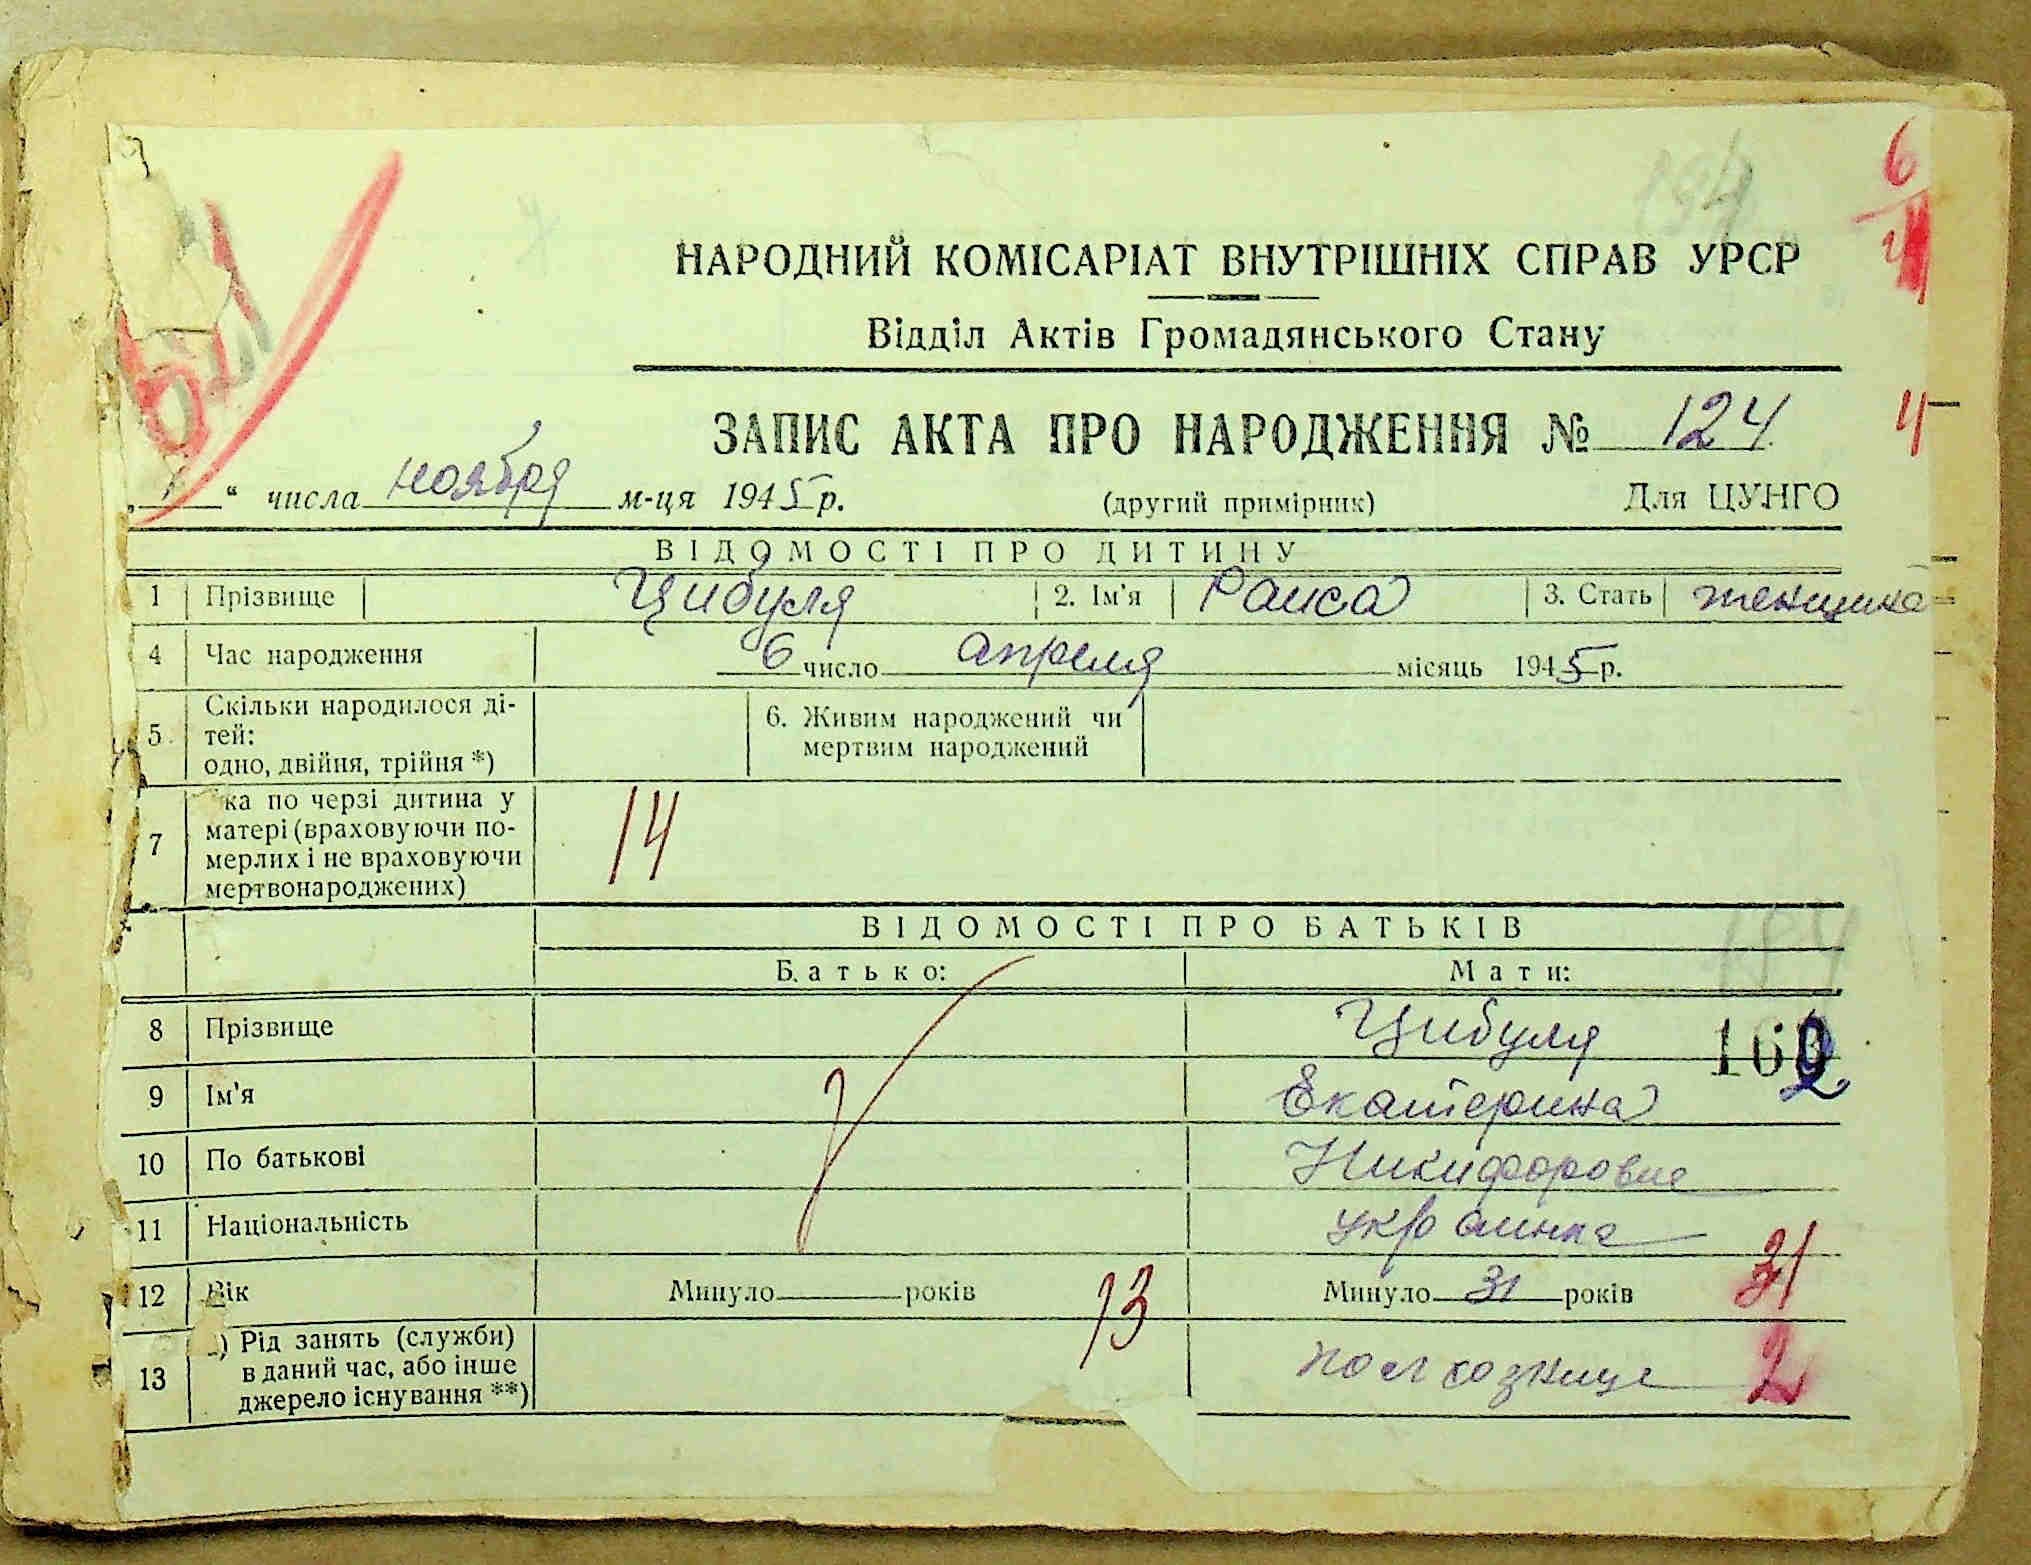 194
6
4
НАРОДНИЙ КОМІСАРІАТ ВНУТРІШНІХ СПРАВ УРСР
Відділ Актів Громадянського Стану
ЗАПИС АКТА ПРО НАРОДЖЕННЯ № 124
4
„ “ числа ноября м-ця 1945 р. (другий примірник) Для ЦУНГО
ВІДОМОСТІ ПРО ДИТИНУ
1 Прізвище Цибуля 2. Ім'я Раиса 3. Стать женщина
4 Час народження 6 число апреля місяць 1945 р.
5. Скільки народилося ді-
тей:
одно, двійня, трійня *)
6. Живим народжений чи
мертвим народжений
7 ка по черзі дитина у
матері (враховуючи по-
мерлих і не враховуючи
мертвонароджених)
14
ВІДОМОСТІ ПРО БАТЬКІВ
Батько: Мати:
194
8 Прізвище Цибуля
162
9 Ім'я Екатерина
10 По батькові Никифоровна
11 Національність украинка
12 Вік Минуло років 13 Минуло 31 років 31
13 ) Рід занять (служби)
в даний час, або інше
джерело існування **)
колхозница 2